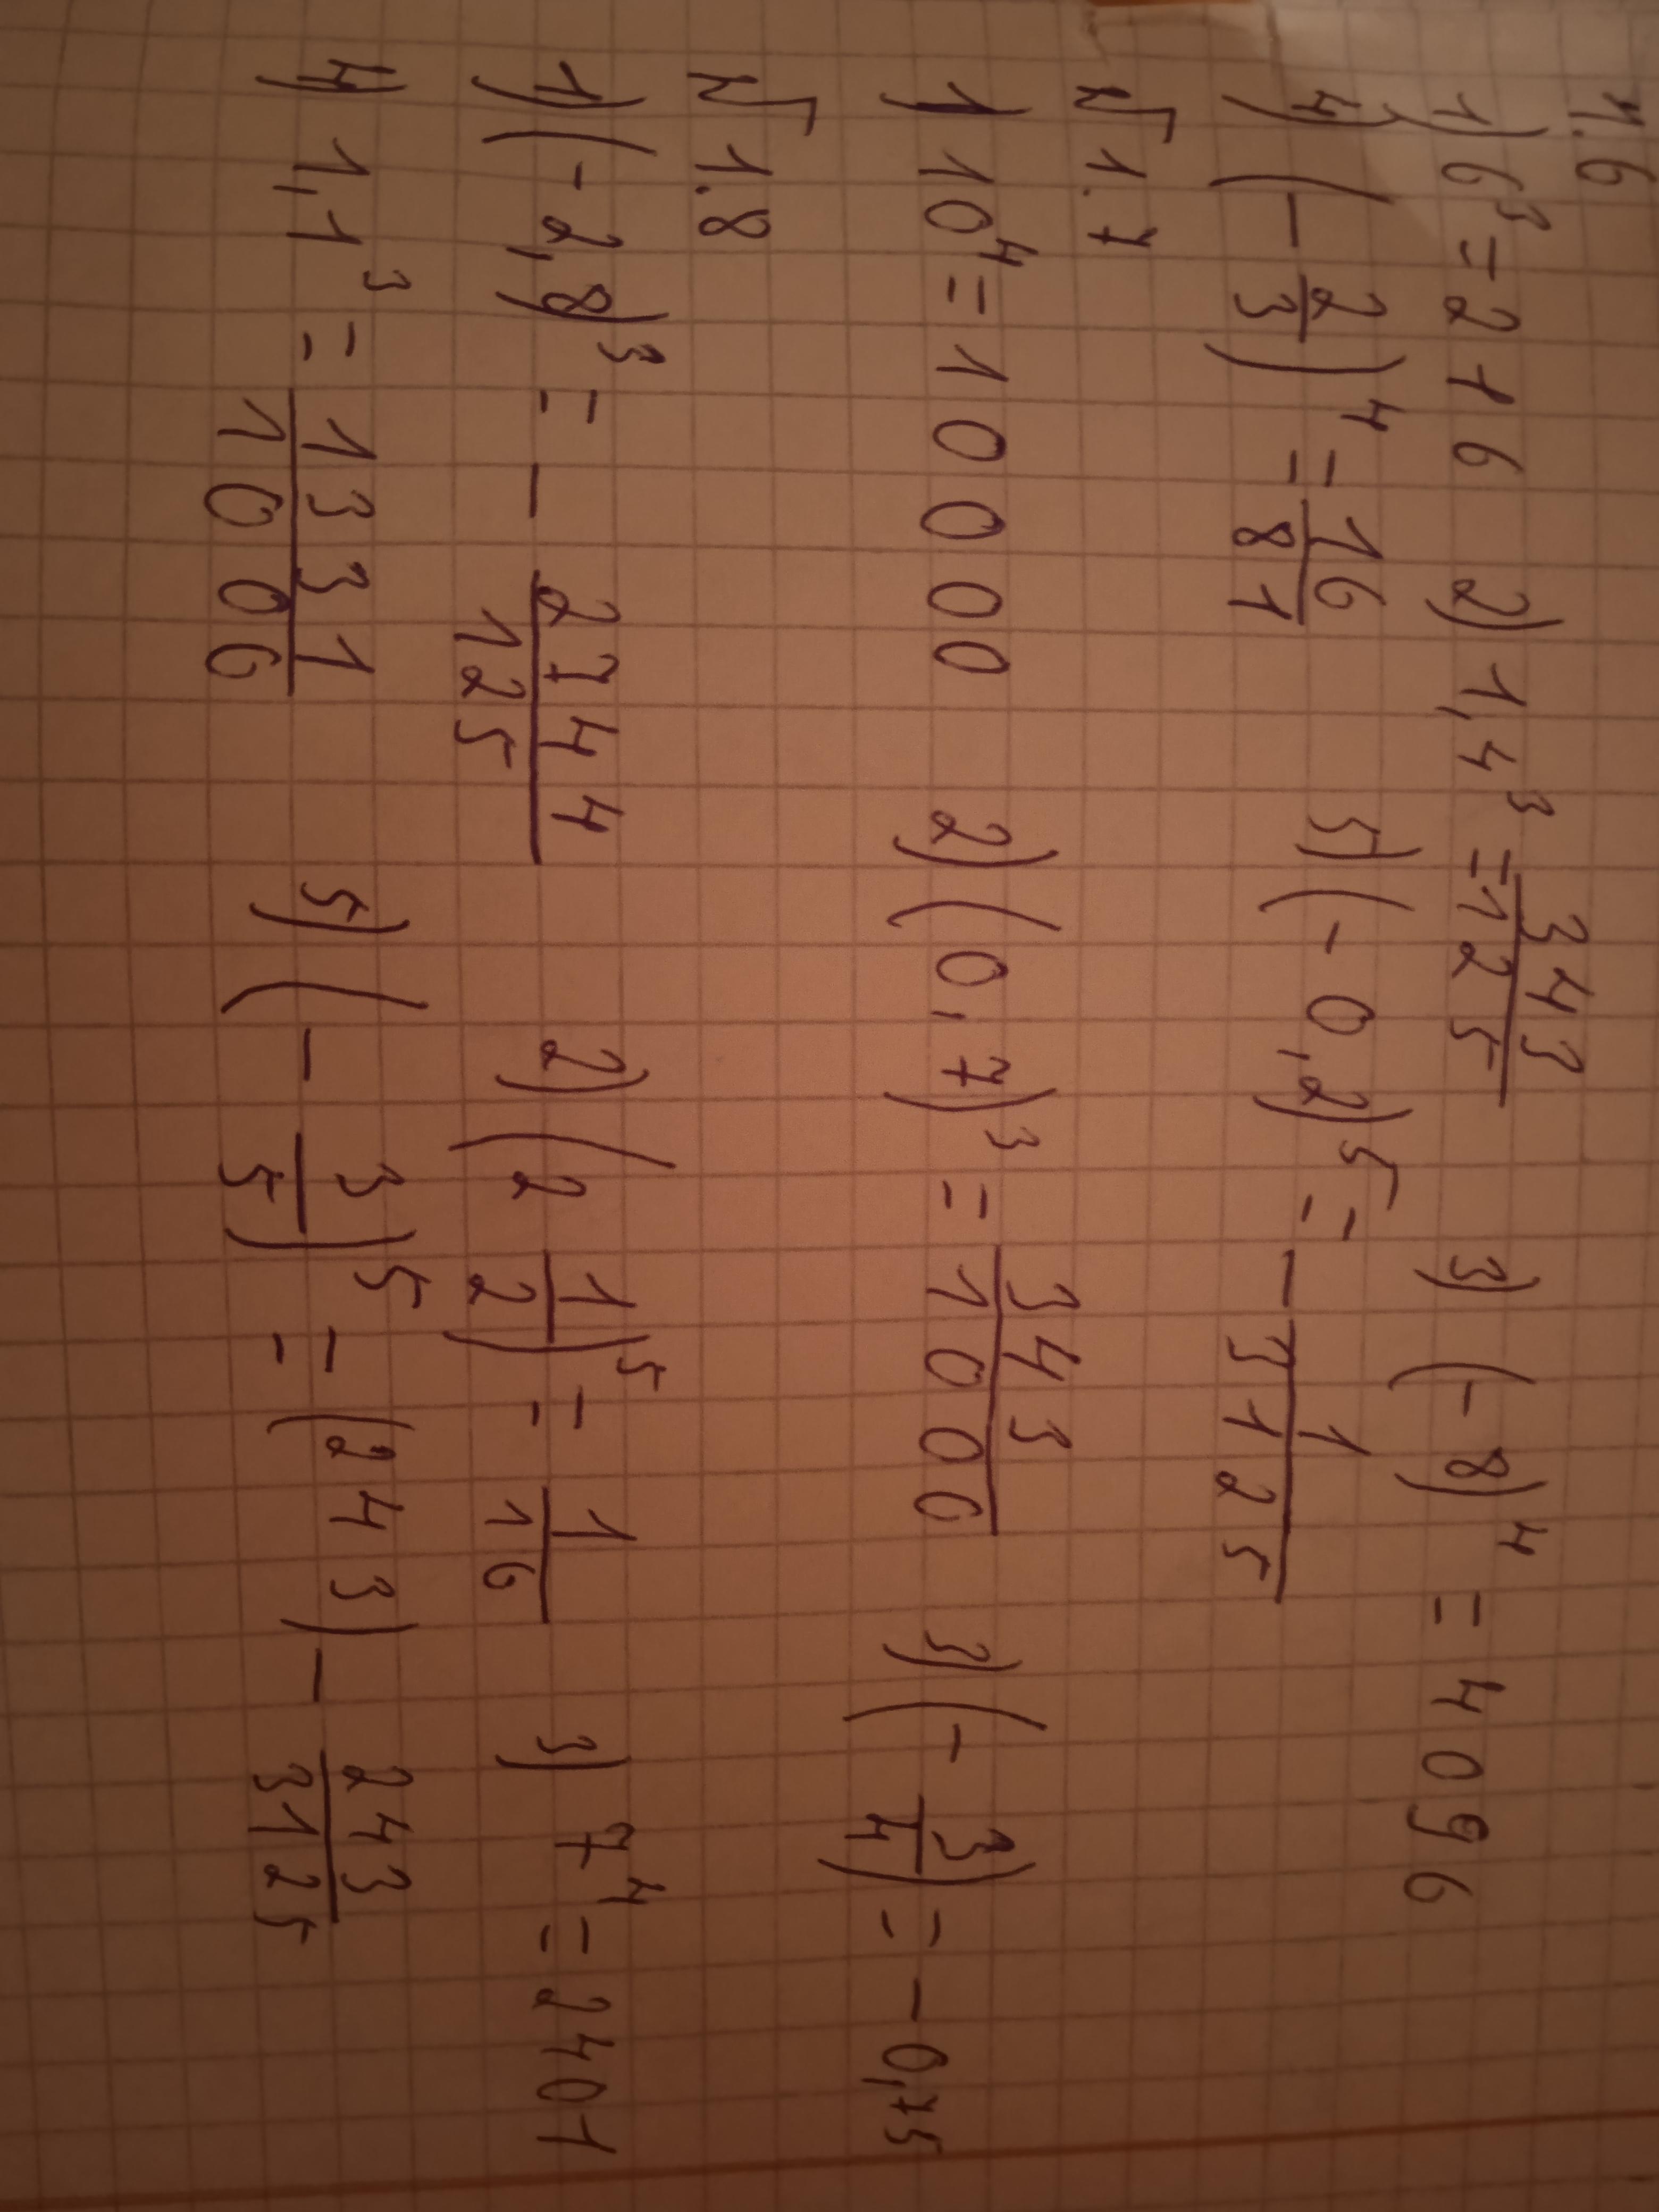 1.6
1) 6³ = 216 2) 1,4³ = 343/125 3) (-8)⁴ = 4096
4) (- 2/3)⁴ = 16/81 5) (-0,2)⁵ = - 1/3125
№ 1.7
1) 10⁴ = 10000 2) (0,7)³ = 343/1000 3) (- 3/4) = -0,75
№ 1.8
1) (-2,8)³ = - 2744/125 2) (2 1/2)⁵ = 1/16 3) 7⁴ = 2401
4) 1,1³ = 1331/1000 5) (- 3/5)⁵ = (243) - 243/3125